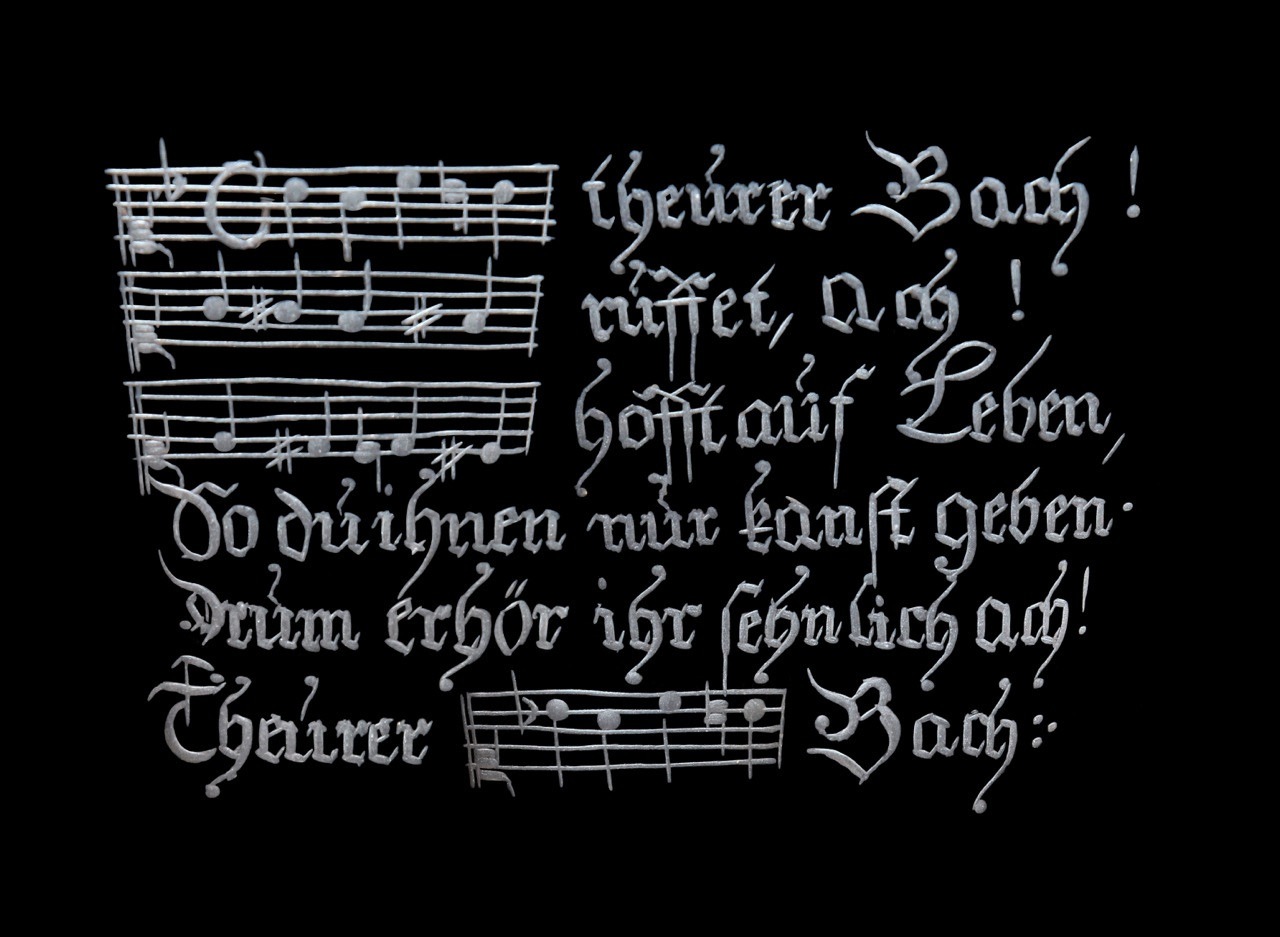 theurer Bach !
rüffet, Ach !
hofft auf Leben,
So du ihnen nur kanſt geben.
Drum erhör ihr ſehnlich ach!
Theurer Bach: